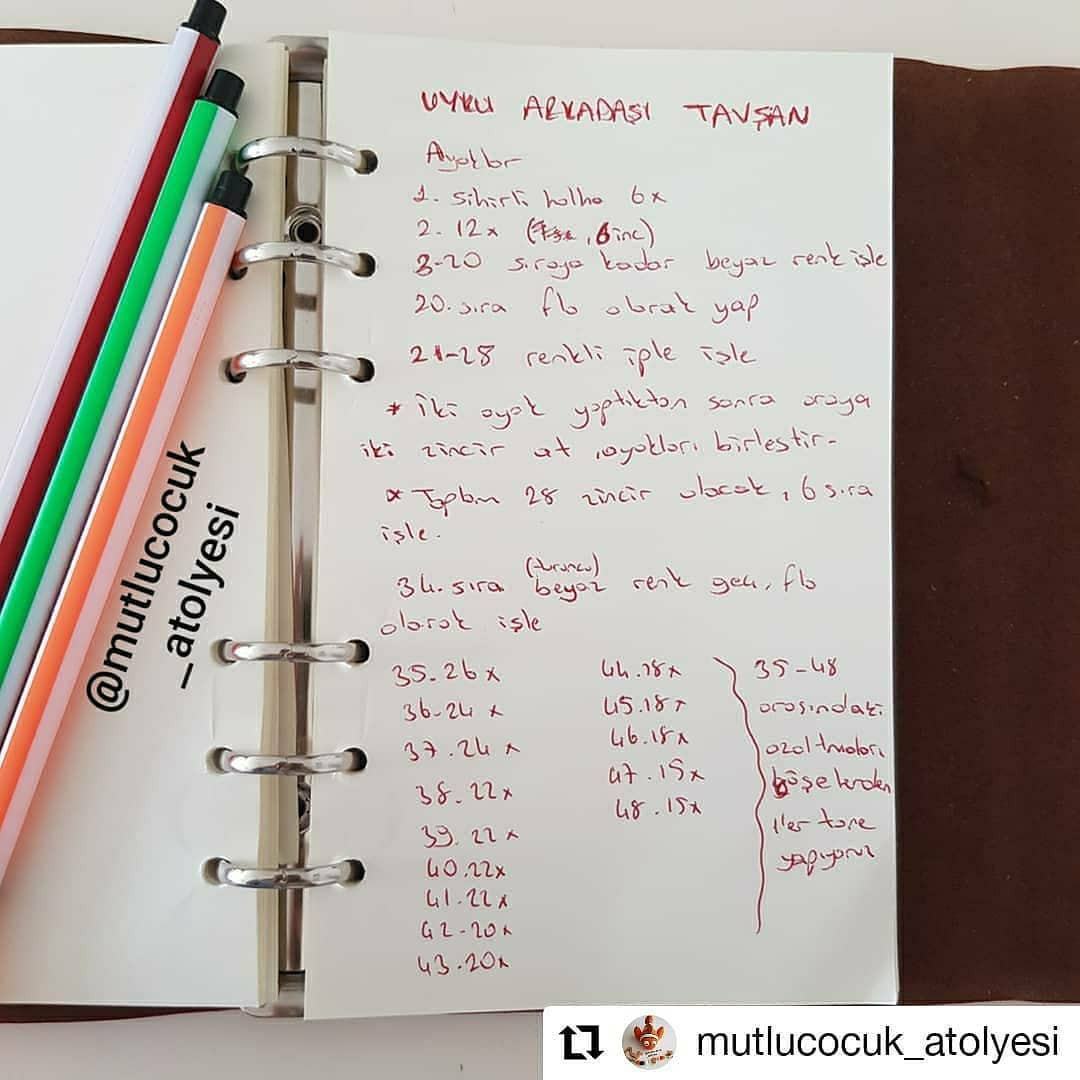 UYKU ARKADAŞI TAVŞAN
Ayaklar
1. sihirli halka 6x
2. 12x ( , 6 inc)
3-20 sıraya kadar beyaz renk işle
20. sıra flo olarak yap
21-28 renkli iple işle
* iki ayak yaptıktan sonra araya
iki zincir at, ayakları birleştir-
* Toplam 28 zincir olacak, 6 sıra
işle.
(turuncu)
34. sıra beyaz renk geç, flo
olarak işle
35-26x
36-24x
37.24x
38.22x
39.22x
40.22x
41.22x
42-20x
43.20x
44.18x
45.18x
46.18x
47.15x
48.15x
35-48
arasındaki
azaltmaları
köşelerden
1'er tane
yapıyoruz
@mutlucocuk
_atolyesi
mutlucocuk_atolyesi